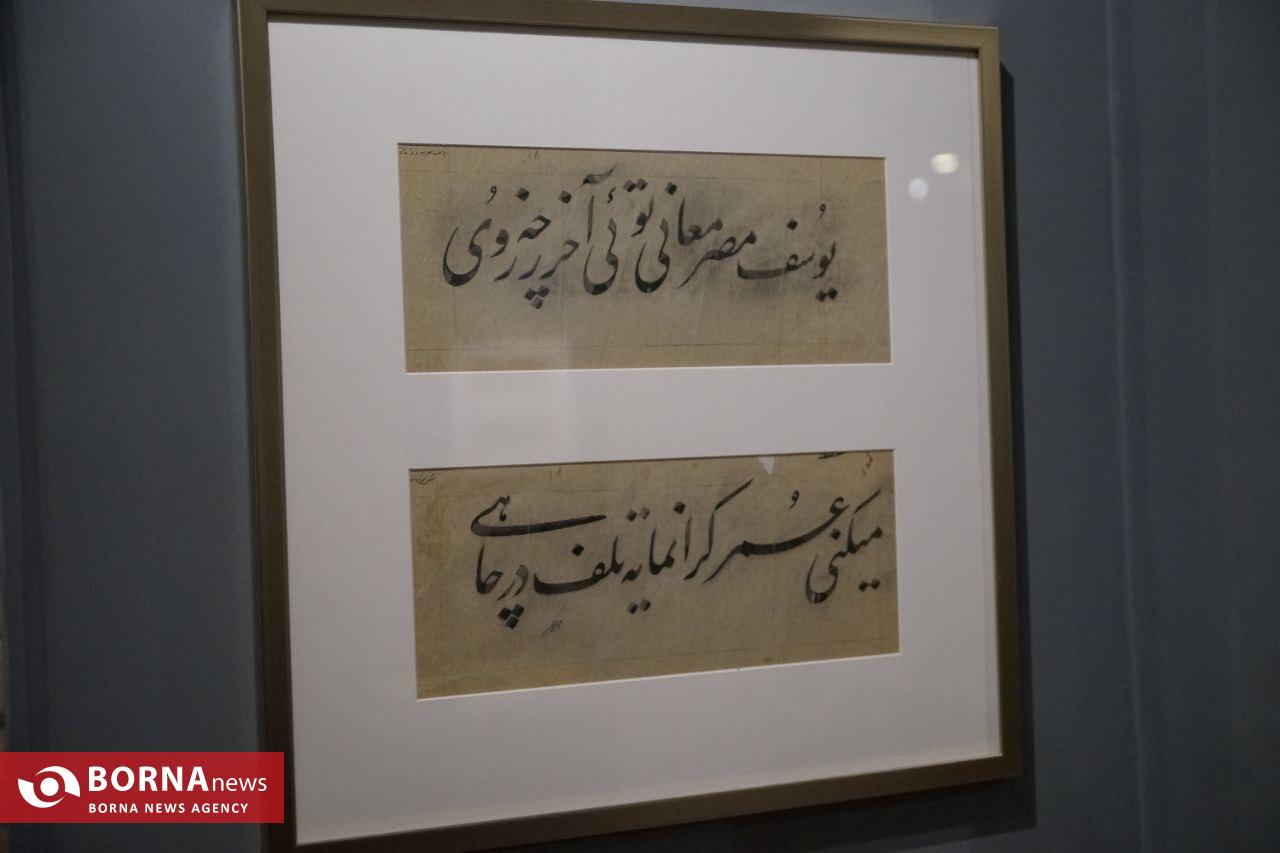 یوسف مصر معانی توئی آخر ز چه روی
میکنی عمر گرانمایه تلف در چاهی
BORNA news
BORNA NEWS AGENCY